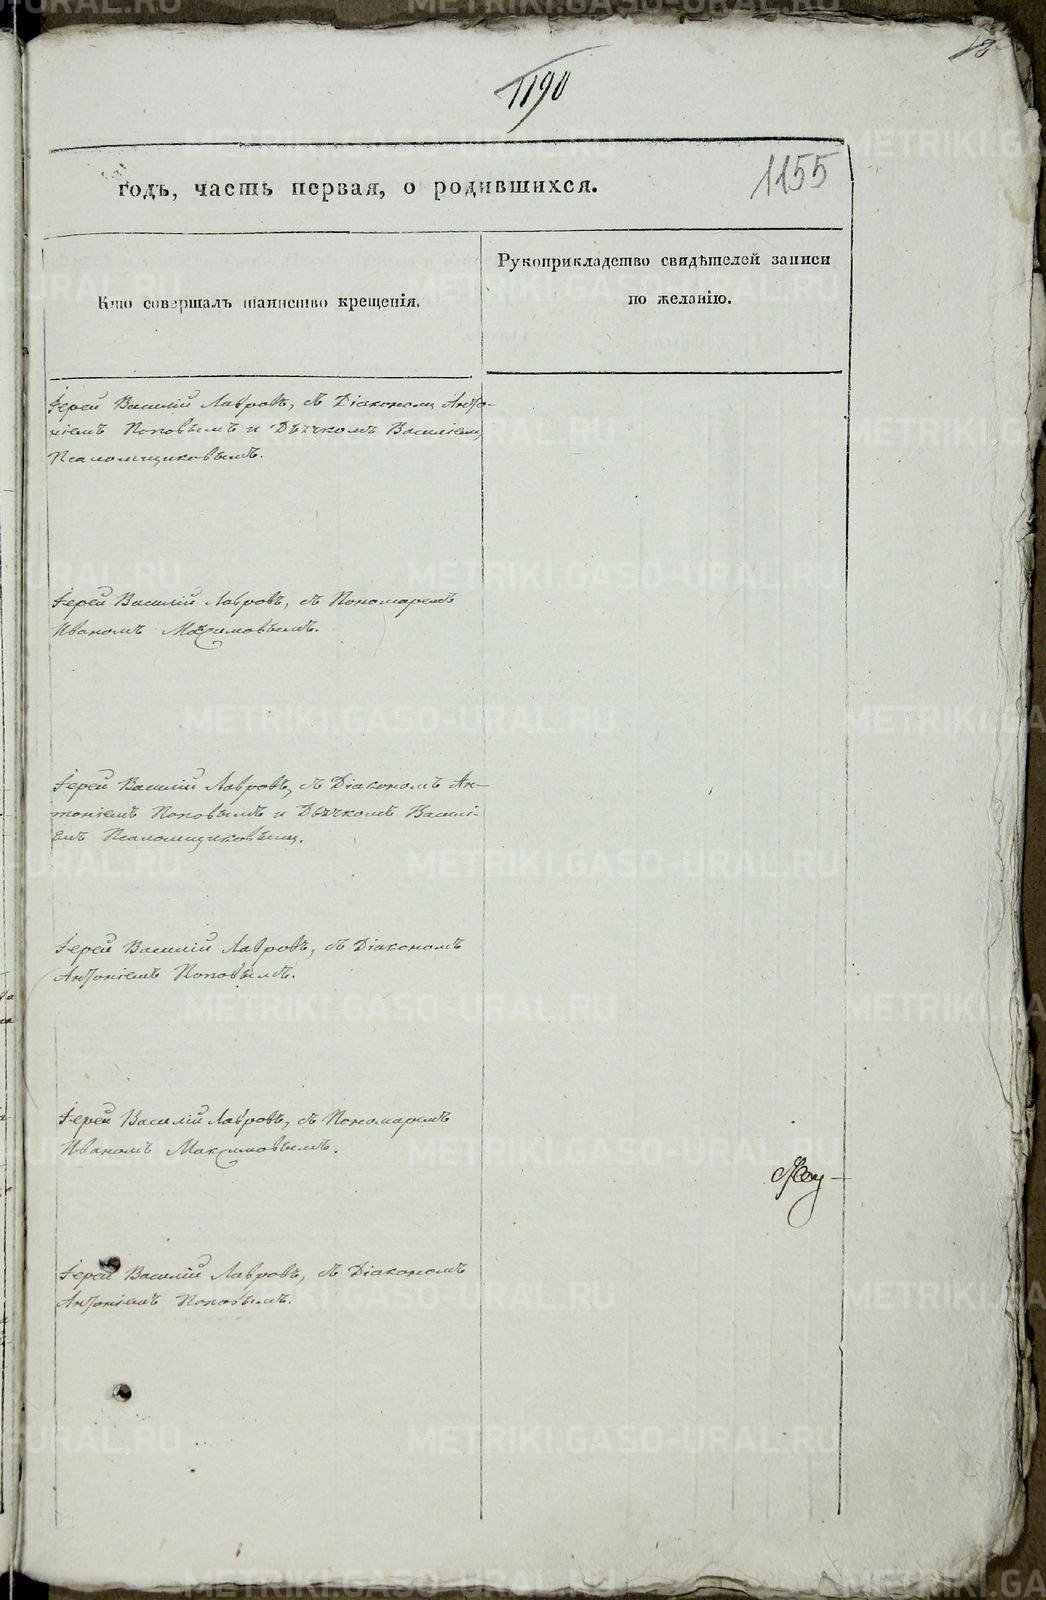 1190
1155
годъ, часть первая, о родившихся.
Кто совершалъ таинство крещенія.
Рукоприкладство свидѣтелей записи
по желанію.
Іерей Василій Лавровъ, съ Діакономъ Анто-
ніемъ Поповымъ и Дьячкомъ Василіемъ
Псаломщиковымъ.
Іерей Василій Лавровъ, съ Пономаремъ
Иваномъ Максимовымъ.
Іерей Василій Лавровъ, съ Діакономъ Ан-
тоніемъ Поповымъ и Дьячкомъ Василі-
емъ Псаломщиковымъ.
Іерей Василій Лавровъ, съ Діакономъ
Антоніемъ Поповымъ.
Іерей Василій Лавровъ, съ Пономаремъ
Иваномъ Максимовымъ.
Іерей Василій Лавровъ, съ Діакономъ
Антоніемъ Поповымъ.
METRIKI.GASO-URAL.RU